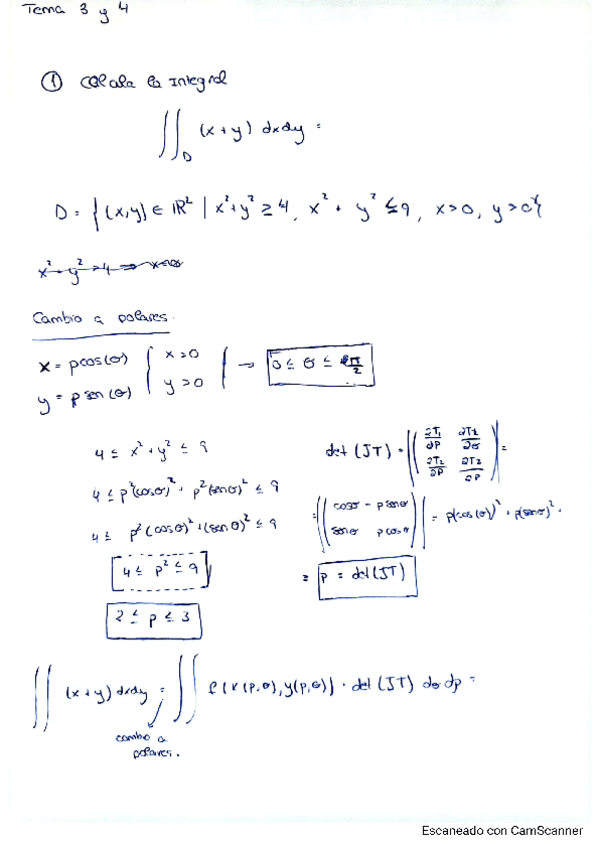 Tema 3 y 4
① Calcula la integral
∬_D (x+y) dxdy =
D = {(x,y) ∈ ℝ² | x²+y² ≥ 4, x² + y² ≤ 9, x>0, y>0}
Cambio a polares.
x = ρcos(θ) { x>0
y = ρsen(θ) { y>0 | → 0 ≤ θ ≤ π/2
4 ≤ x²+y² ≤ 9
4 ≤ ρ²(cosθ)² + ρ²(senθ)² ≤ 9
4 ≤ ρ²(cosθ)²+(senθ)² ≤ 9
4 ≤ ρ² ≤ 9
2 ≤ ρ ≤ 3
det (JT) = |( ∂T₁/∂ρ ∂T₁/∂θ
∂T₂/∂ρ ∂T₂/∂ρ )| =
= |( cosθ - ρsenθ
senθ ρcosθ )| = ρ(cos(θ))² + ρ(senθ)² =
= ρ = det(JT)
∬ (x+y) dxdy = ∬ f(x(ρ,θ), y(ρ,θ)) · det (JT) dθ dρ =
cambio a
polares.
Escaneado con CamScanner